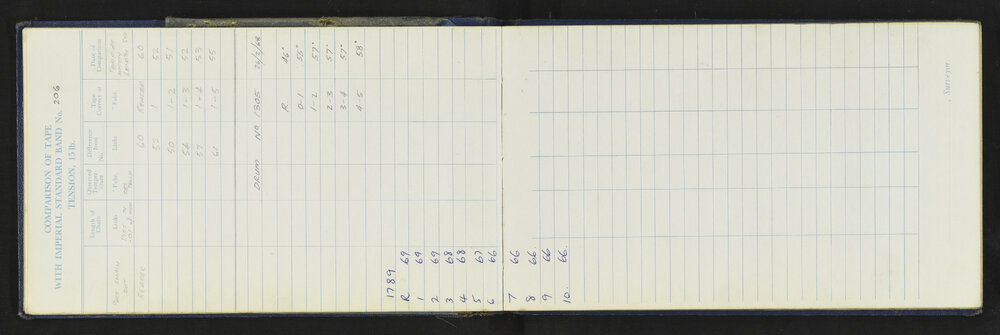 COMPARISON OF TAPE
WITH IMPERIAL STANDARD BAND No. 206
TENSION, 15 lb.
Length of Chain
Observed Temperature
Difference from No.
Tape Correct at
Date of Comparison
Links
°Fahr.
Links
°Fahr.
READER 60 READER 60
52 1 52
50 1-2 51
54 1-3 52
57 1-4 53
61 1-5 55
DRUM No 1305 26/2/68
R. 46°
0-1 55°
1-2 57°
2-3 57°
3-4 57°
4-5 58°
1789
R 69
1 69
2 69
3 68
4 68
5 67
6 66
7 66
8 66.
9 66
10. 66.
Surveyor.